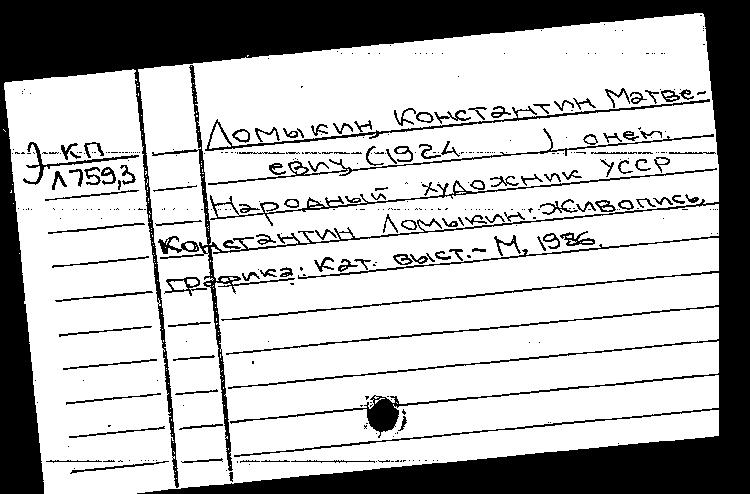 Э КП
Л759,3
Ломыкин, Константин Матве-
евич, (1924 ), о нем.
Народный художник УССР
Константин Ломыкин: Живопись,
графика: Кат. выст.- М, 1986.